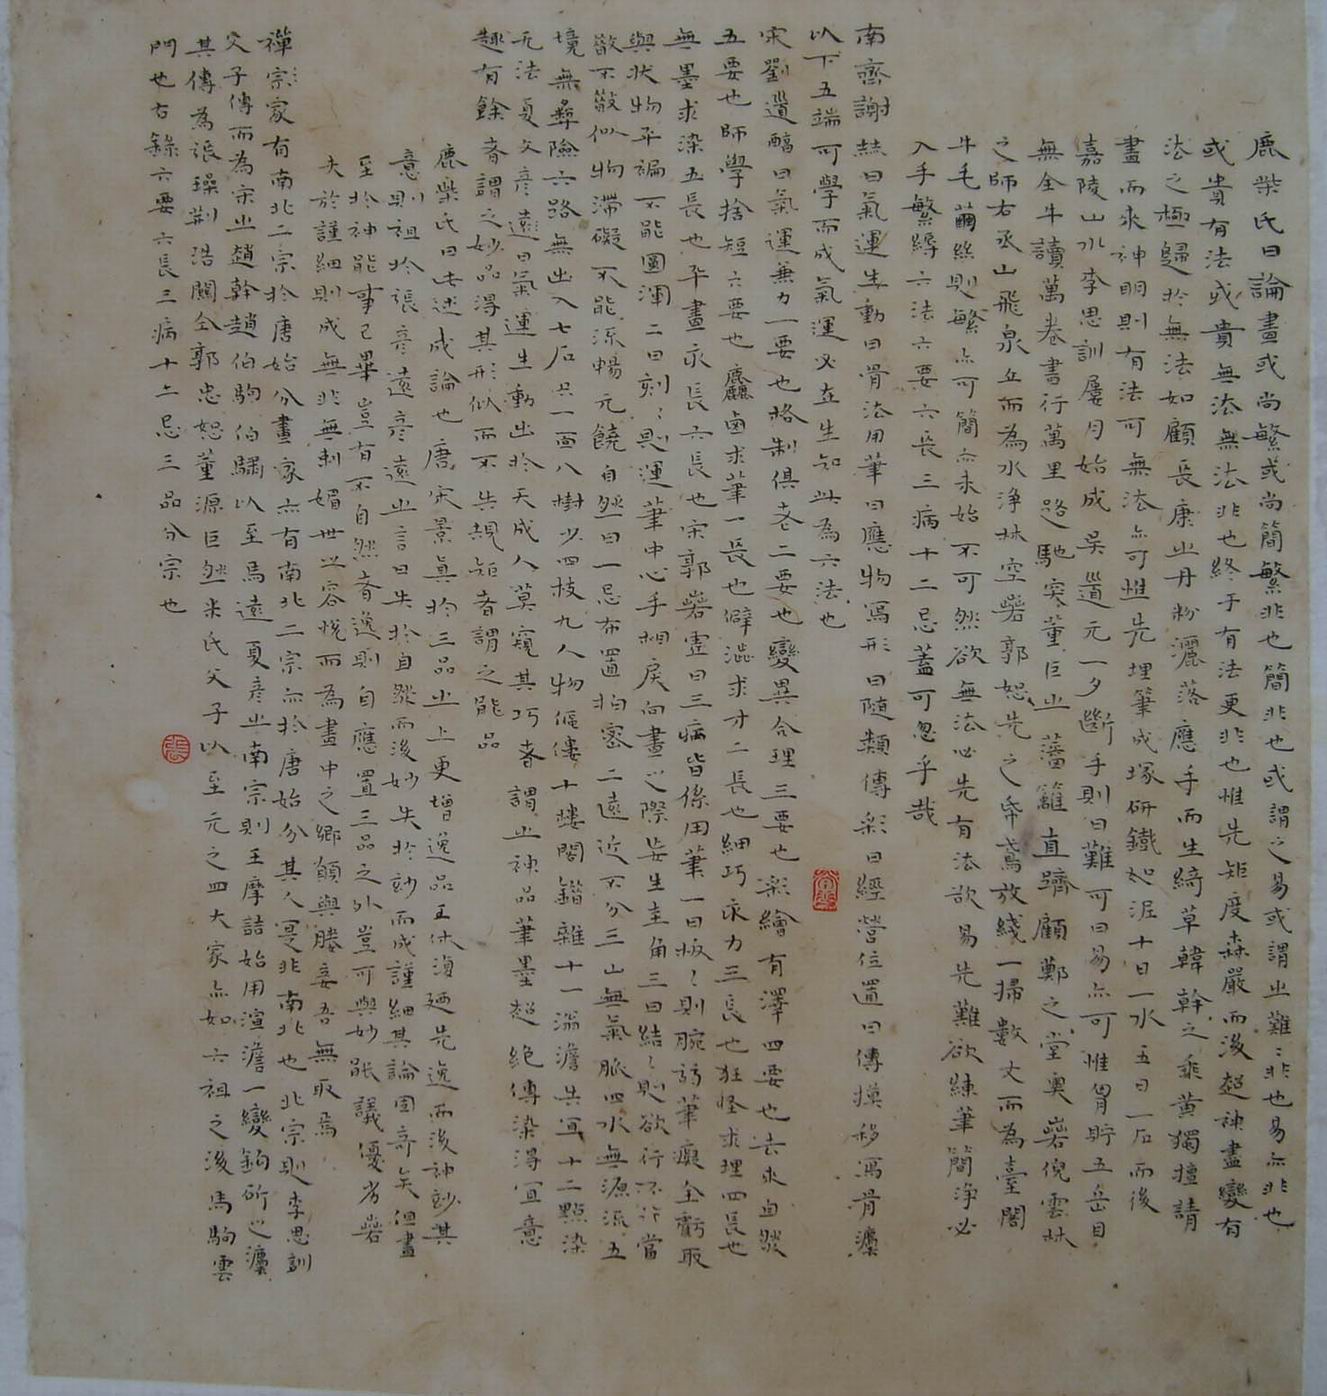 鹿柴氏曰論畫或尚繁或尚簡繁非也簡非也或謂之易或謂之難〻非也易亦非也
或貴有法或貴無法無法非也終于有法更非也惟先矩度森嚴而後超神盡變有
法之極歸於無法如顧長康之丹粉灑落應手而生綺草韓幹之乘黃獨擅請
畫而來神明則有法可無法亦可惟先埋筆成塚研鐵如泥十日一水五日一石而後
嘉陵山水李思訓屢月始成吳道元一夕斷手則曰難可曰易亦可惟胷貯五岳目
無全牛讀萬卷書行萬里路馳突董巨之藩籬直躋顧鄭之堂奧若倪雲林
之師右丞山飛泉立而為水淨林空若郭恕先之帋鳶放綫一掃數丈而為臺閣
牛毛繭絲則繁亦可簡亦未始不可然欲無法必先有法欲易先難欲練筆簡淨必
入手繁縟六法六要六長三病十二忌蓋可忽乎哉
南齊謝赫曰氣運生動曰骨法用筆曰應物寫形曰隨類傳彩曰經營位置曰傳摸移寫骨灋
以下五端可學而成氣運必在生知此為六法也
宋劉道醇曰氣運兼力一要也格制俱老二要也變異合理三要也彩繪有澤四要也去來自然
五要也師學捨短六要也麤鹵求筆一長也僻澁求才二長也細巧求力三長也狂怪求理四長也
無墨求染五長也平畫求長六長也宋郭若虛曰三病皆係用筆一曰板〻則腕弱筆癡全虧取
與狀物平褊不能圜渾二曰刻〻則運筆中心手相戾向畫之際妄生圭角三曰結〻則欲行不行當
散不散似物滯礙不能流暢元饒自然曰一忌布置拍密二遠近不分三山無氣脈四水無源流五
境無彝險六路無出入七石止一面八樹少四枝九人物傴僂十樓閣錯雜十一滃澹失宜十二點染
无法夏文彥遠曰氣運生動出於天成人莫窺其巧者謂之神品筆墨超絕傳染得宜意
趣有餘者謂之妙品得其形似而不失規矩者謂之能品
鹿柴氏曰此述成論也唐宋景真於三品之上更增逸品王休復廼先逸而後神妙其
意則祖於張彥遠彥遠之言曰失於自然而後妙失於妙而成謹細其論固奇矣但畫
至於神能事已畢豈有不自然者逸則自應置三品之外豈可與妙能議優劣若
夫於謹細則成無非無刺媚世之容悅而為畫中之鄉愿與媵妾吾無取焉
禪宗家有南北二宗於唐始分畫家亦有南北二宗亦於唐始分其人寔非南北也北宗則李思訓
父子傳而為宋之趙幹趙伯駒伯驌以至馬遠夏彥之南宗則王摩詰始用渲澹一變鉤斫之灋
其傳為張璪荆浩關仝郭忠恕董源巨然米氏父子以至元之四大家亦如六祖之後馬駒雲
門也右錄六要六長三病十二忌三品分宗也
張